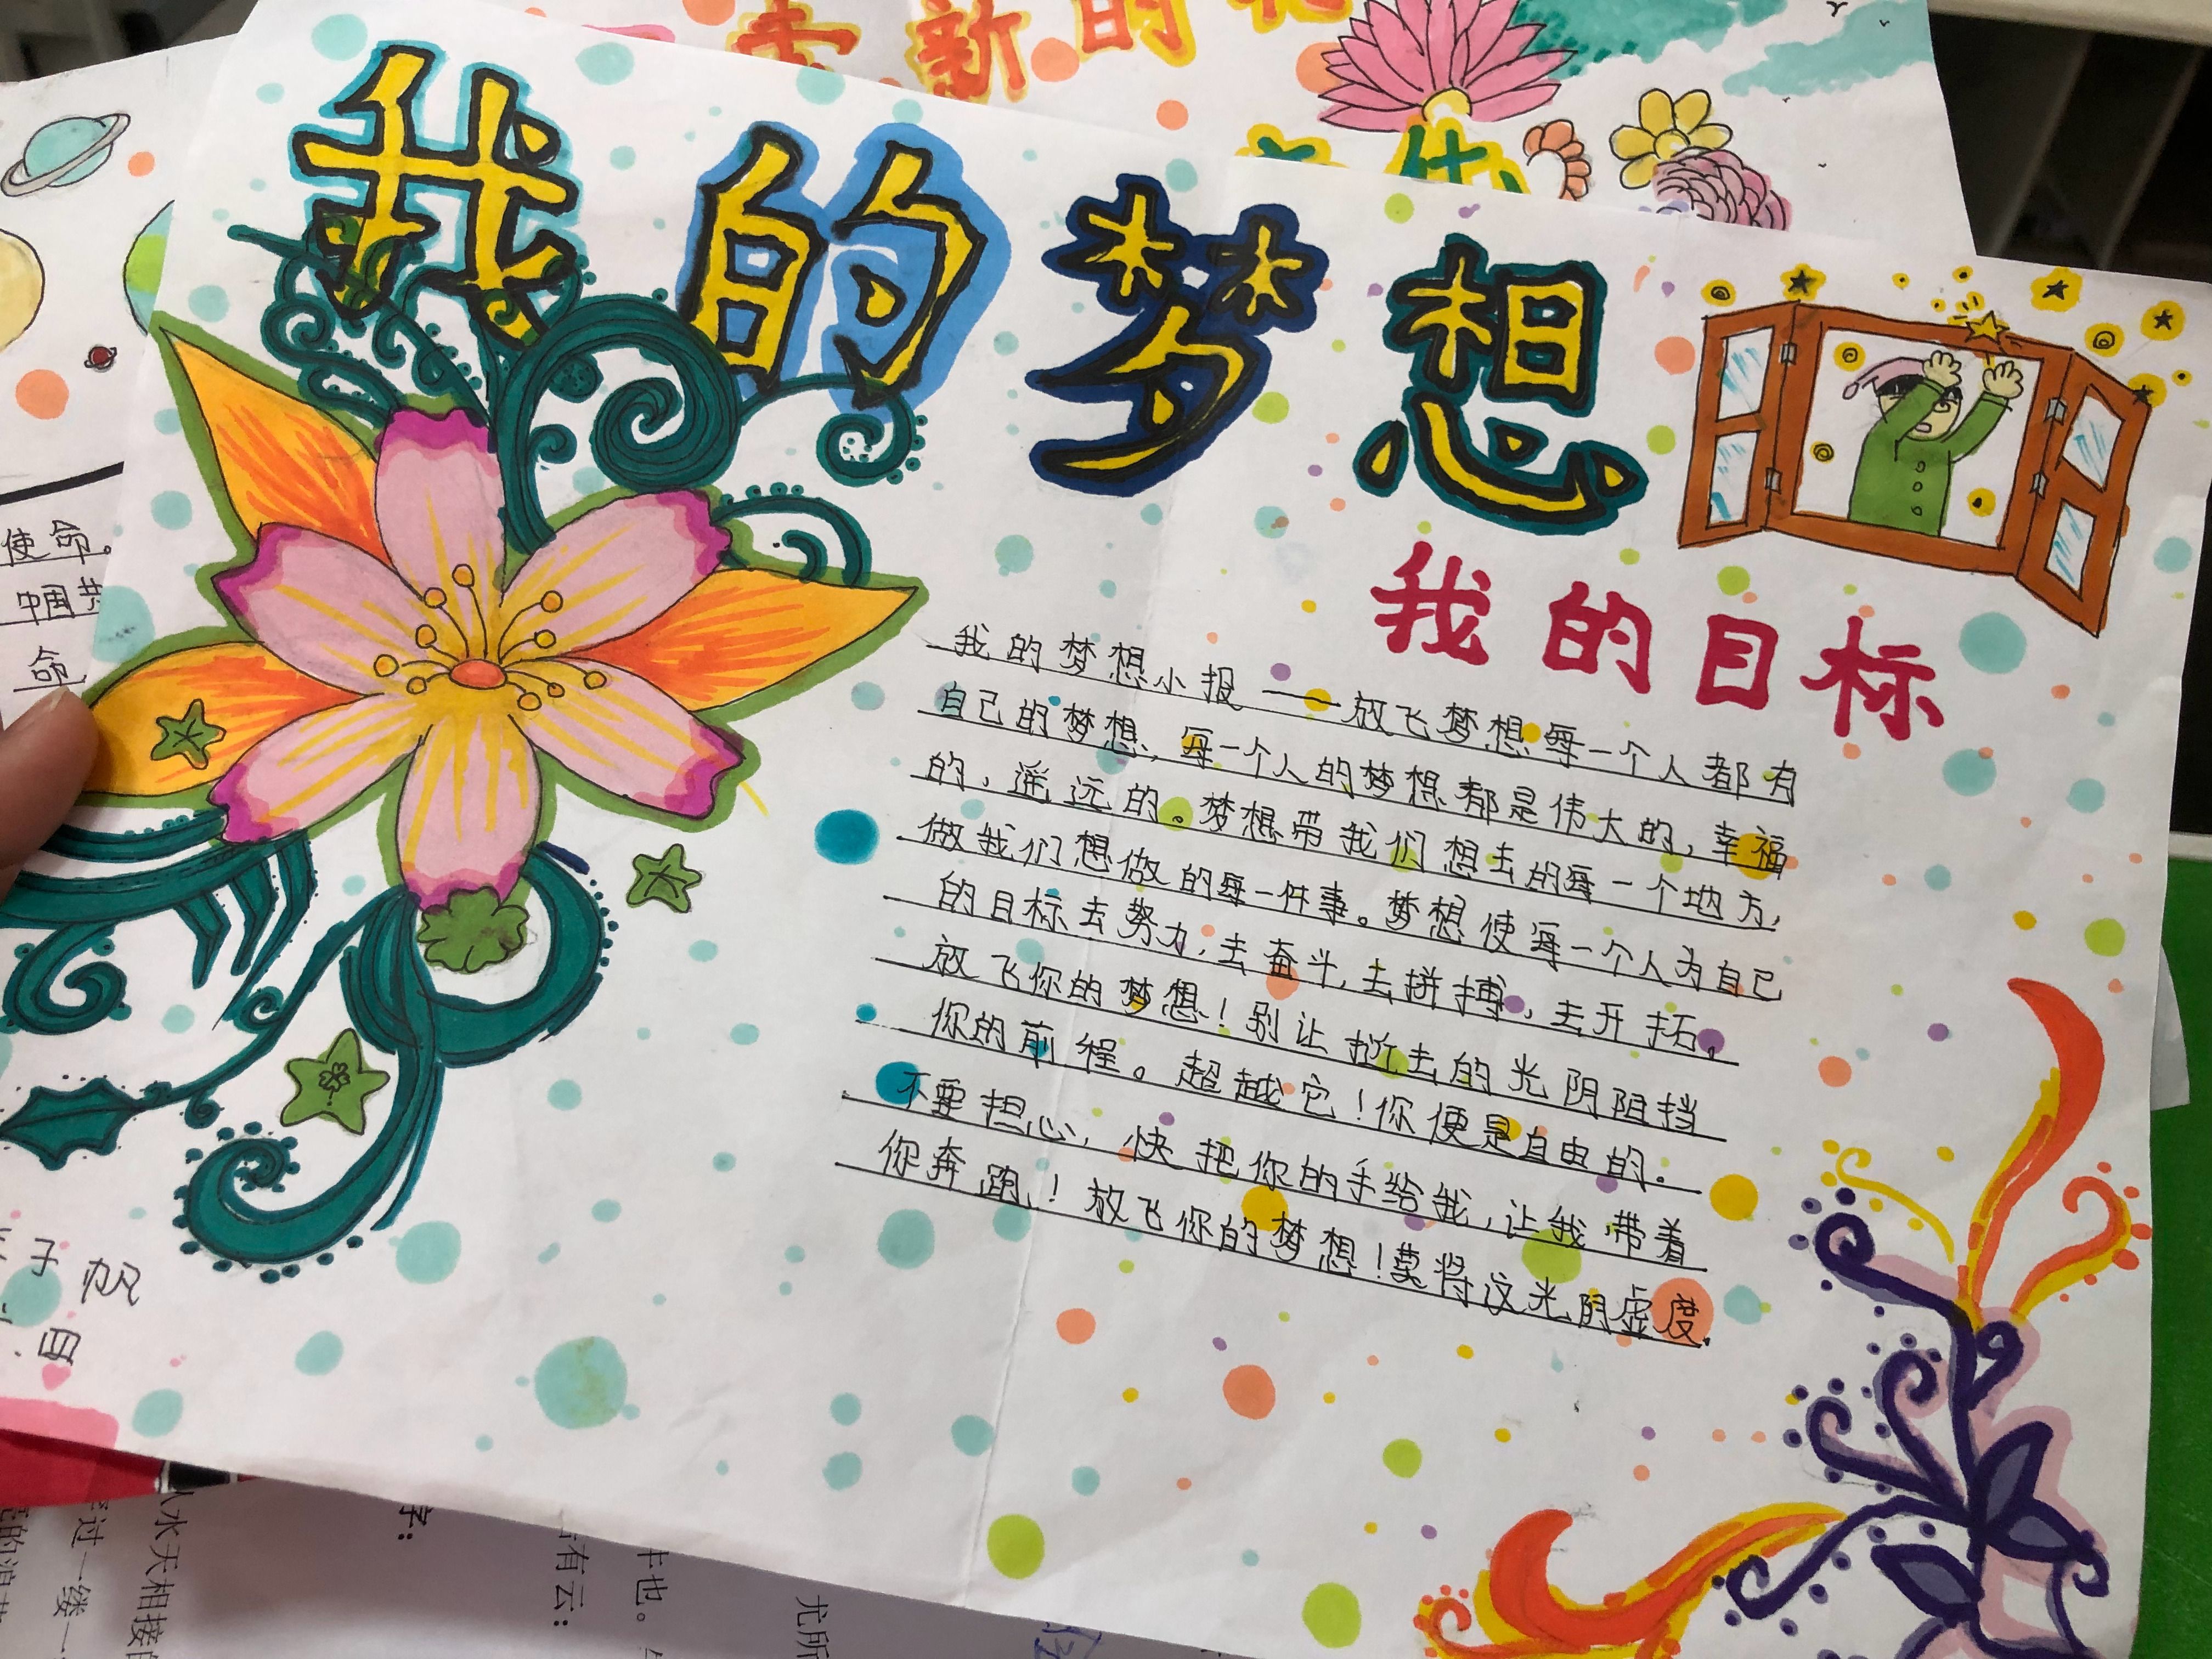 新的
我的梦想
我的目标
我的梦想小报——放飞梦想每一个人都有
自己的梦想，每一个人的梦想都是伟大的，幸福
的，遥远的。梦想带我们想去的每一个地方，
做我们想做的每一件事。梦想使每一个人为自己
的目标去努力，去奋斗，去拼搏，去开拓。
放飞你的梦想！别让逝去的光阴阻挡
你的前程。超越它！你便是自由的。
不要担心，快把你的手给我，让我带着
你奔跑！放飞你的梦想！莫将这光阴虚度.
使命。
中国梦
命
子帆
目
水天相接
过一缕一
字：
有云：
也。
尤所